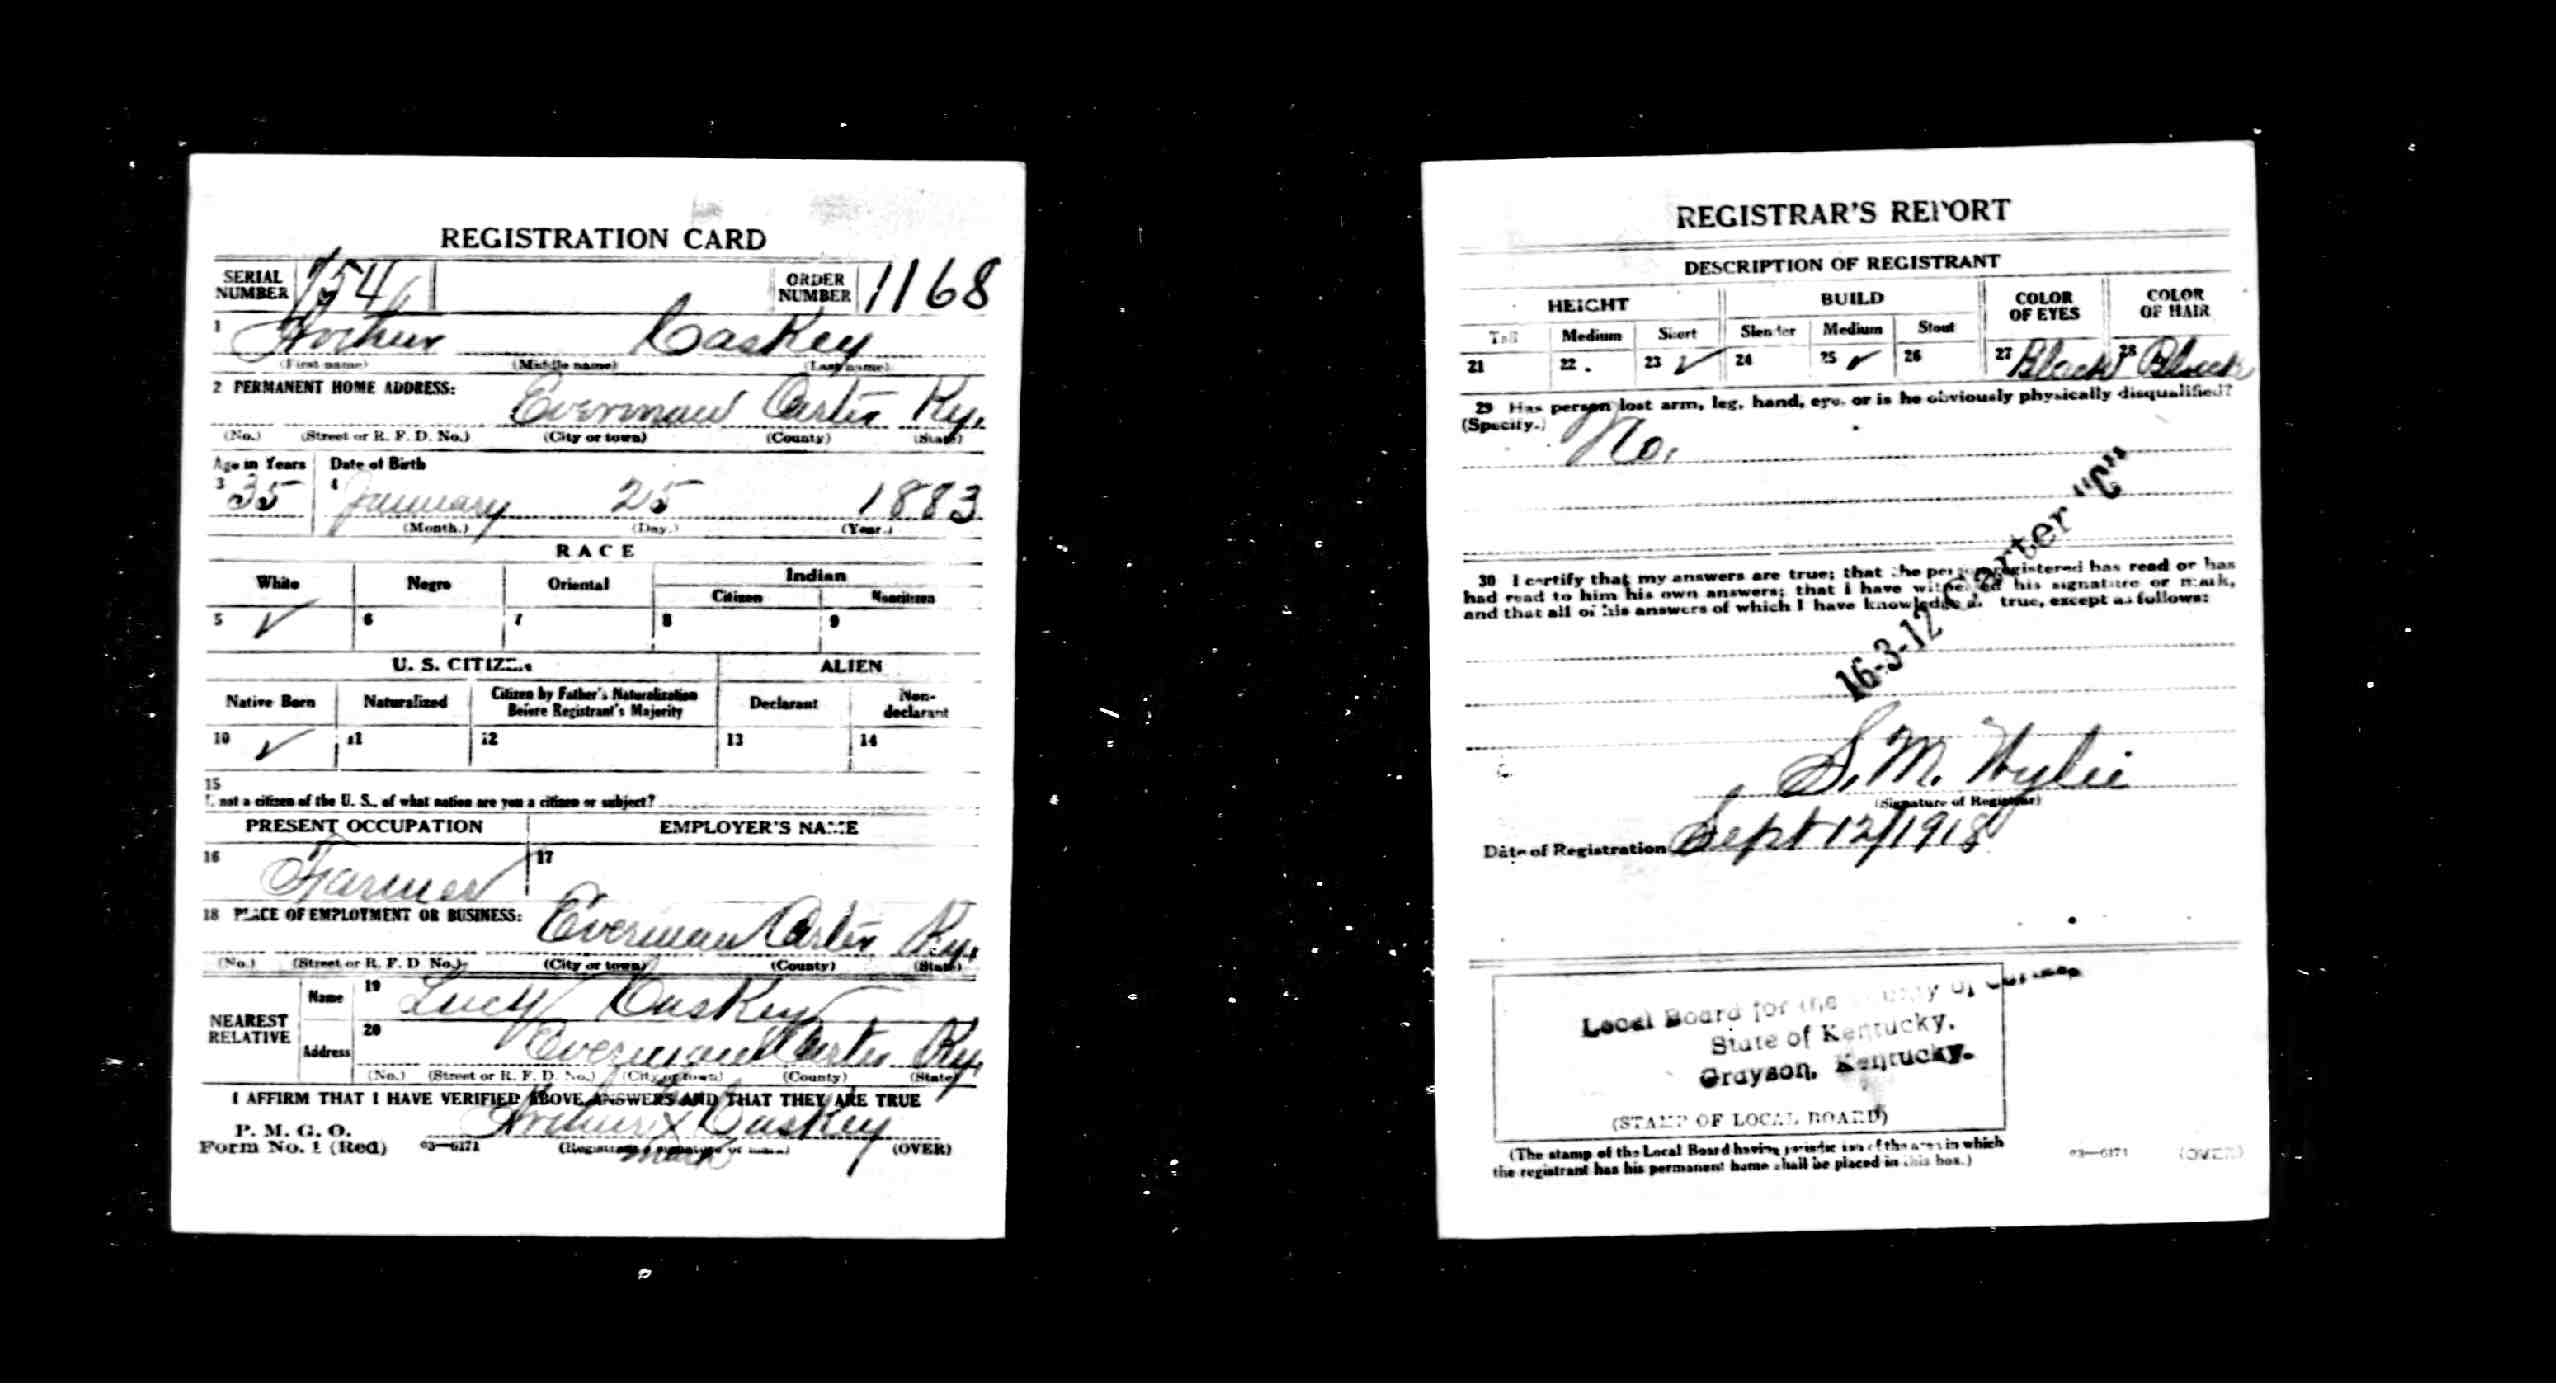 REGISTRATION CARD
SERIAL NUMBER 1546 ORDER NUMBER 1168
1 Arthur Caskey
(First name) (Middle name) (Last name)
2 PERMANENT HOME ADDRESS:
Everman Carter Ky.
(No.) (Street or R. F. D. No.) (City or town) (County) (State)
Age in Years Date of Birth
3 35 4 January 25 1883
(Month.) (Day.) (Year.)
RACE
White Negro Oriental Indian
Citizen Noncitizen
5 ✓ 6 7 8 9
U. S. CITIZEN ALIEN
Native Born Naturalized Citizen by Father's Naturalization Before Registrant's Majority Declarant Non-declarant
10 ✓ 11 12 13 14
15
If not a citizen of the U. S., of what nation are you a citizen or subject?
PRESENT OCCUPATION EMPLOYER'S NAME
16 Farmer 17
18 PLACE OF EMPLOYMENT OR BUSINESS:
Everman Carter Ky.
(No.) (Street or R. F. D. No.) (City or town) (County) (State)
NEAREST RELATIVE
Name 19 Lucy Caskey
Address 20 Everman Carter Ky.
(No.) (Street or R. F. D. No.) (City or town) (County) (State)
I AFFIRM THAT I HAVE VERIFIED ABOVE ANSWERS AND THAT THEY ARE TRUE
P. M. G. O.
Form No. 1 (Red) 03—6171 Arthur X Caskey
(Registrant's signature or mark) (OVER)
mark
REGISTRAR'S REPORT
DESCRIPTION OF REGISTRANT
HEIGHT BUILD COLOR OF EYES COLOR OF HAIR
Tall Medium Short Slender Medium Stout
21 22 23 ✓ 24 25 ✓ 26 27 Black 28 Black
29 Has person lost arm, leg, hand, eye, or is he obviously physically disqualified?
(Specify.) No.
30 I certify that my answers are true; that the person registered has read or has
had read to him his own answers; that I have witnessed his signature or mark,
and that all of his answers of which I have knowledge are true, except as follows:
16-3-12 Carter "C"
S. M. Wylie
(Signature of Registrar)
Date of Registration Sept 12/1918
Local Board for the County of Carter
State of Kentucky.
Grayson, Kentucky.
(STAMP OF LOCAL BOARD)
(The stamp of the Local Board having jurisdiction of the area in which
the registrant has his permanent home shall be placed in this box.)
03—6171 (OVER)